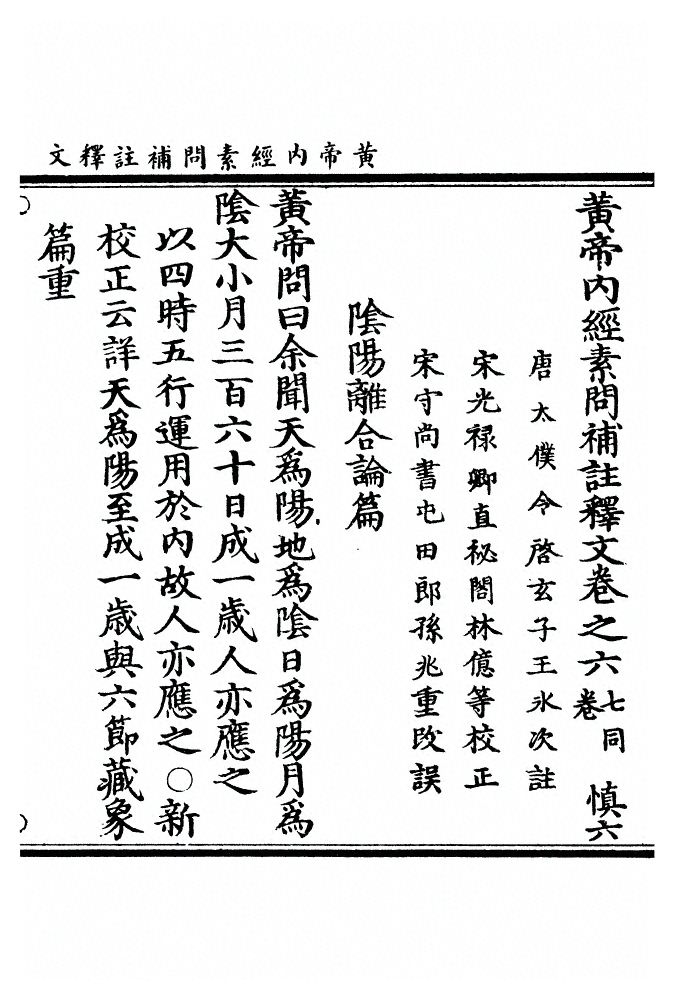 黄帝内經素問補註釋文
黃帝内經素問補註釋文卷之六 七同卷 慎六
唐太僕令啓玄子王氷次註
宋光禄卿直秘閣林億等校正
宋守尚書屯田郎孫兆重改誤
陰陽離合論篇
黃帝問曰余聞天爲陽地爲陰日爲陽月爲
陰大小月三百六十日成一歲人亦應之
以四時五行運用於内故人亦應之○新
校正云詳天爲陽至成一歲與六節藏象
篇重